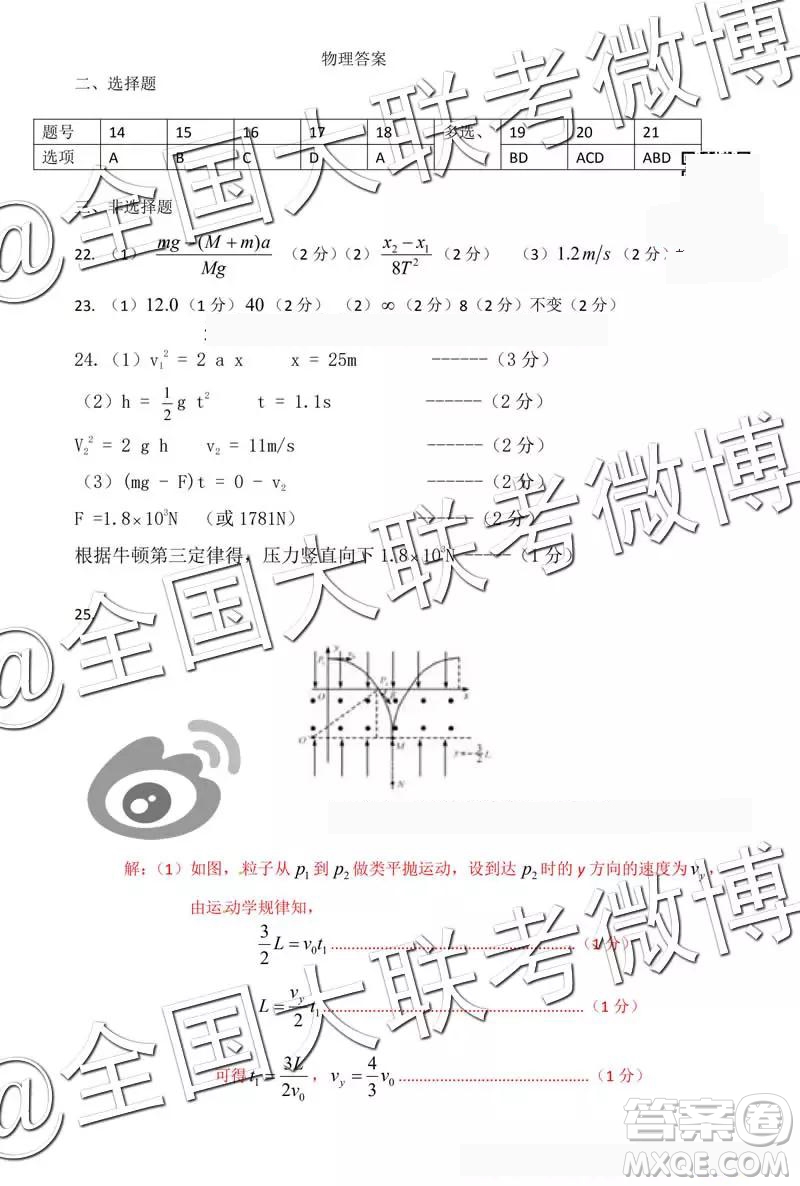 物理答案
二、选择题
题号 14 15 16 17 18 多选、 19 20 21
选项 A B C D A BD ACD ABD
三、非选择题
22. （1） \frac{mg-(M+m)a}{Mg} （2 分）（2） \frac{x_2-x_1}{8T^2} （2 分） （3）1.2m/s（2 分）
23. （1）12.0（1 分）40（2 分） （2）∞（2 分）8（2 分）不变（2 分）
24.（1）v₁² = 2 a x x = 25m ------（3 分）
（2）h = \frac{1}{2} g t² t = 1.1s ------（2 分）
V₂² = 2 g h v₂ = 11m/s ------（2 分）
（3）(mg - F)t = 0 - v₂ ------（2 分）
F =1.8×10³N （或 1781N） ------（2 分）
根据牛顿第三定律得，压力竖直向下 1.8×10³N------（1 分）
25.
y
O x
O′ M y=-\frac{3}{2}L
N
解：（1）如图，粒子从 p₁ 到 p₂ 做类平抛运动，设到达 p₂ 时的 y 方向的速度为 v_y，
由运动学规律知，
\frac{3}{2}L = v₀t₁ ......................................................（1 分）
L = \frac{v_y}{2}t₁ ......................................................（1 分）
可得 t₁ = \frac{3L}{2v₀}，v_y = \frac{4}{3}v₀ ..........................................（1 分）
@全国大联考微博
@全国大联考微博
@全国大联考微博
答案卷
MXQE.COM